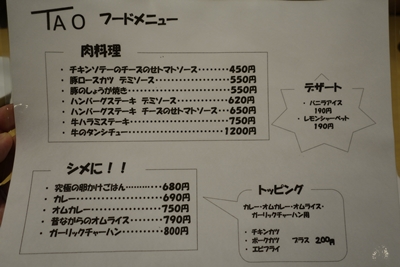 TAO フードメニュー
肉料理
・ チキンソテーのチーズのせトマトソース・・・・・・・・450円
・ 豚ロースカツ デミソース・・・・・・・・・・550円
・ 豚のしょうが焼き・・・・・・・・・・550円
・ ハンバーグステーキ デミソース・・・・・・・・620円
・ ハンバーグステーキ チーズのせトマトソース・・・・・650円
・ 牛ハラミステーキ・・・・・・・・・・750円
・ 牛のタンシチュー・・・・・・・・・・1200円
デザート
・ バニラアイス
190円
・ レモンシャーベット
190円
シメに！！
・ 究極の卵かけごはん・・・・・・・・・・680円
・ カレー・・・・・・・・・・690円
・ オムカレー・・・・・・・・・・750円
・ 昔ながらのオムライス・・・・・・790円
・ ガーリックチャーハン・・・・・・800円
トッピング
カレー・オムカレー・オムライス・
ガーリックチャーハン用
・ チキンカツ
・ ポークカツ プラス 200円
・ エビフライ